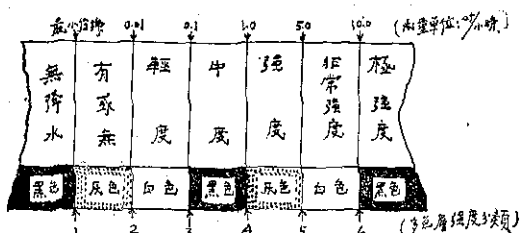 最小信號 0.01 0.1 1.0 5.0 10.0 (雨量單位:吋/小時)
無降水 有或無 輕度 中度 強度 非常強度 極強度
黑色 灰色 白色 黑色 灰色 白色 黑色
1 2 3 4 5 6 (多色層強度分類)